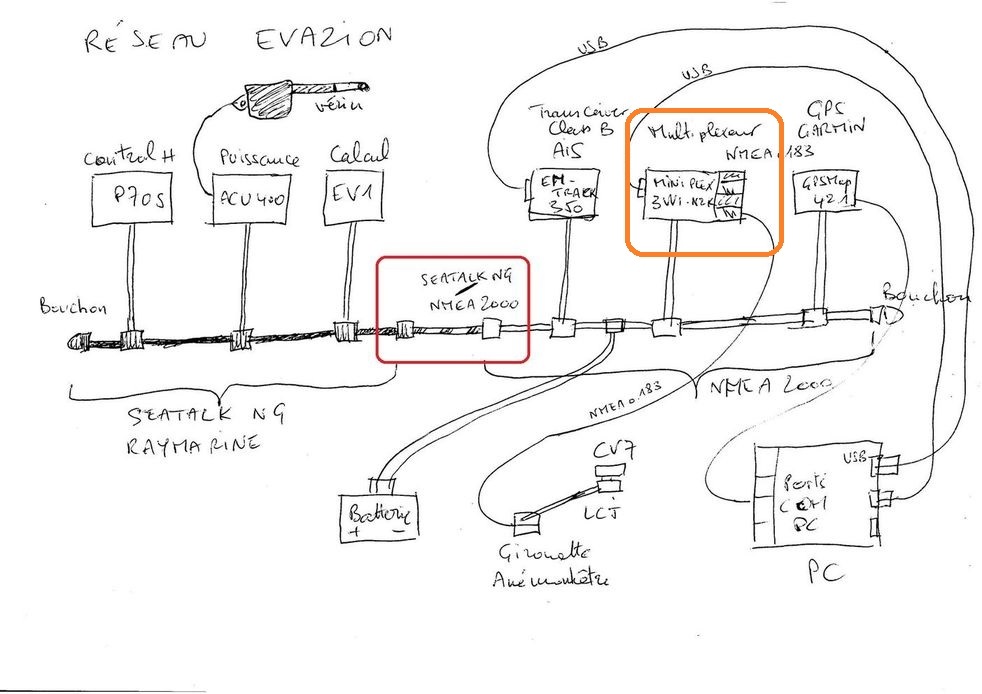 RÉSEAU EVAZION
USB
USB
vérin
Transceiver
Class B
AIS
Multiplexeur
NMEA 0183
GPS
GARMIN
Control H
Puissance
Calcul
P70S
ACU 400
EV1
EM-
TRACK
350
MINIPLEX
3Wi-N2K
GPSMap
421
SEATALK NG
NMEA 2000
Bouchon
Bouchon
SEATALK NG
RAYMARINE
NMEA 0183
NMEA 2000
Batterie
+ −
CV7
LCJ
Girouette
Anémomètre
USB
Ports
COM
PC
PC